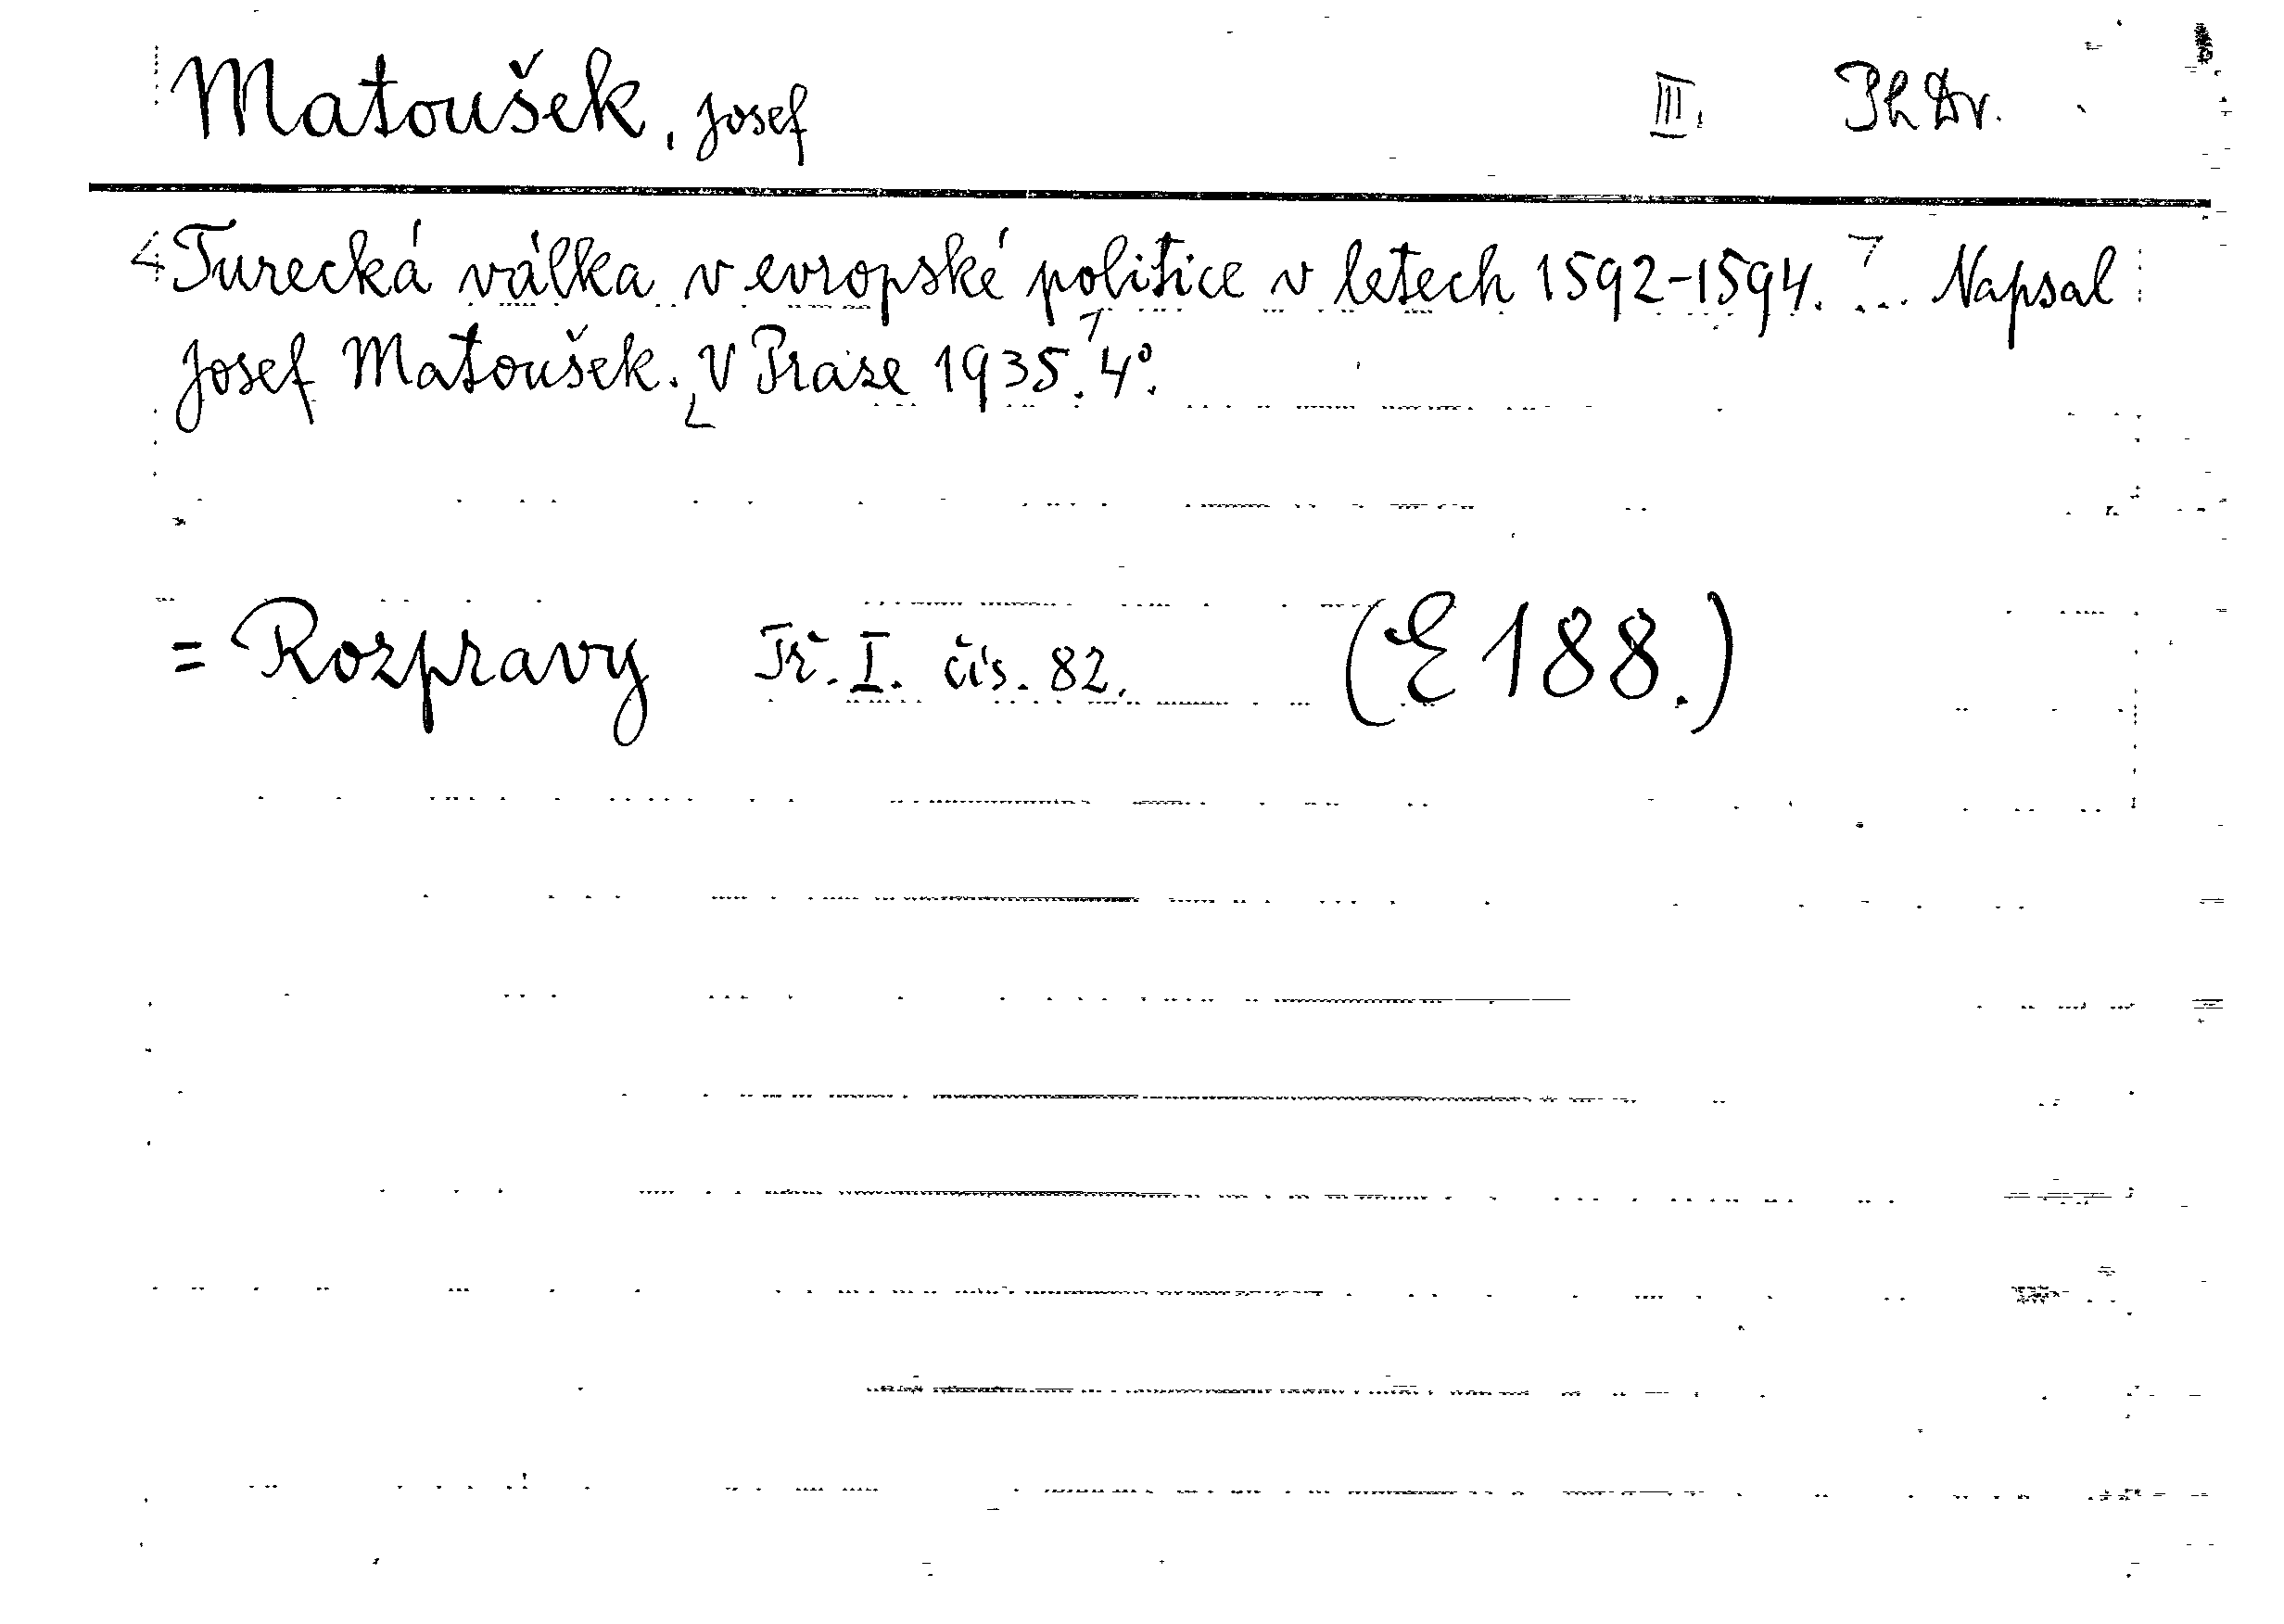 Matoušek, Josef III. PhDr.
Turecká válka v evropské politice v letech 1592-1594. ... Napsal
Josef Matoušek. V Praze 1935. 4°.
= Rozpravy Tř. I. čís. 82. (E 188.)